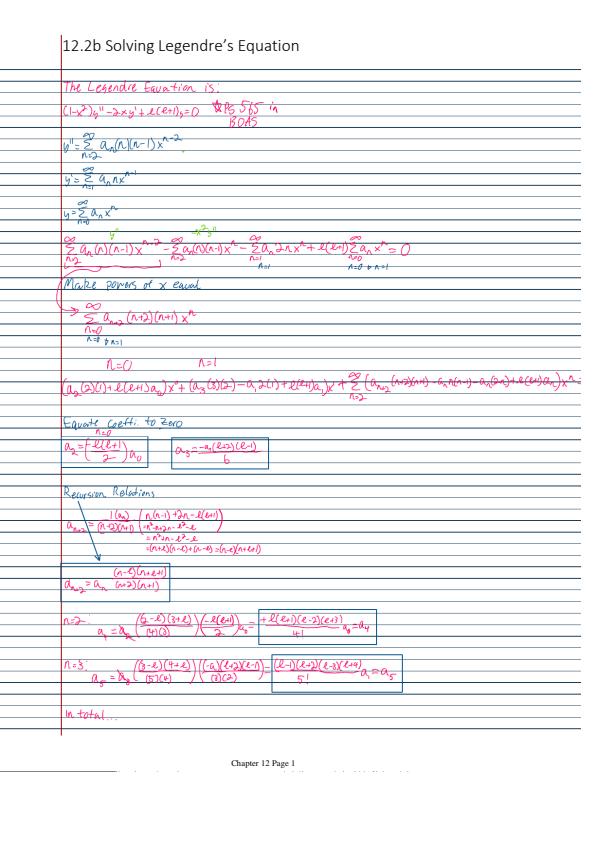 12.2b Solving Legendre's Equation
The Legendre Equation is:
(1-x²)y'' - 2xy' + l(l+1)y = 0 ☆ PG 565 in
BOAS
y'' = ∑_{n=2}^{∞} a_n(n)(n-1)x^{n-2}
y' = ∑_{n=1}^{∞} a_n n x^{n-1}
y = ∑_{n=0}^{∞} a_n x^n
y'' -x²y''
∑_{n=2}^{∞} a_n(n)(n-1)x^{n-2} - ∑_{n=2}^{∞} a_n(n)(n-1)x^n - ∑_{n=1}^{∞} a_n 2n x^n + l(l+1)∑_{n=0}^{∞} a_n x^n = 0
n=1 n=0 & n=1
Make powers of x equal
∑_{n=0}^{∞} a_{n+2}(n+2)(n+1)x^n
n=0 & n=1
n=0 n=1
(a_2(2)(1) + l(l+1)a_0)x^0 + (a_3(3)(2) - a_1 2(1) + l(l+1)a_1)x^1 + ∑_{n=2}^{∞}(a_{n+2}(n+2)(n+1) - a_n n(n-1) - a_n(2n) + l(l+1)a_n)x^n =
Equate Coeffi. to Zero
n=0
a_2 = (-l(l+1)/2)a_0 a_3 = -a_1(l+2)(l-1)/6
Recursion Relations
a_{n+2} = 1(a_n)/((n+2)(n+1)) (n(n-1) + 2n - l(l+1))
= n²-n+2n-l²-l
= n²+n-l²-l
= (n+l)(n-l)+(n-l) = (n-l)(n+l+1)
a_{n+2} = a_n (n-l)(n+l+1)/((n+2)(n+1))
n=2: a_4 = a_2 ((2-l)(3+l)/((4)(3)))(-l(l+1)/2)a_0 = +l(l+1)(l-2)(l+3)/4! a_0 = a_4
n=3: a_5 = a_3 ((3-l)(4+l)/((5)(4)))((-a_1)(l+2)(l-1)/((3)(2))) = (l-1)(l+2)(l-3)(l+4)/5! a_1 = a_5
In total...
Chapter 12 Page 1